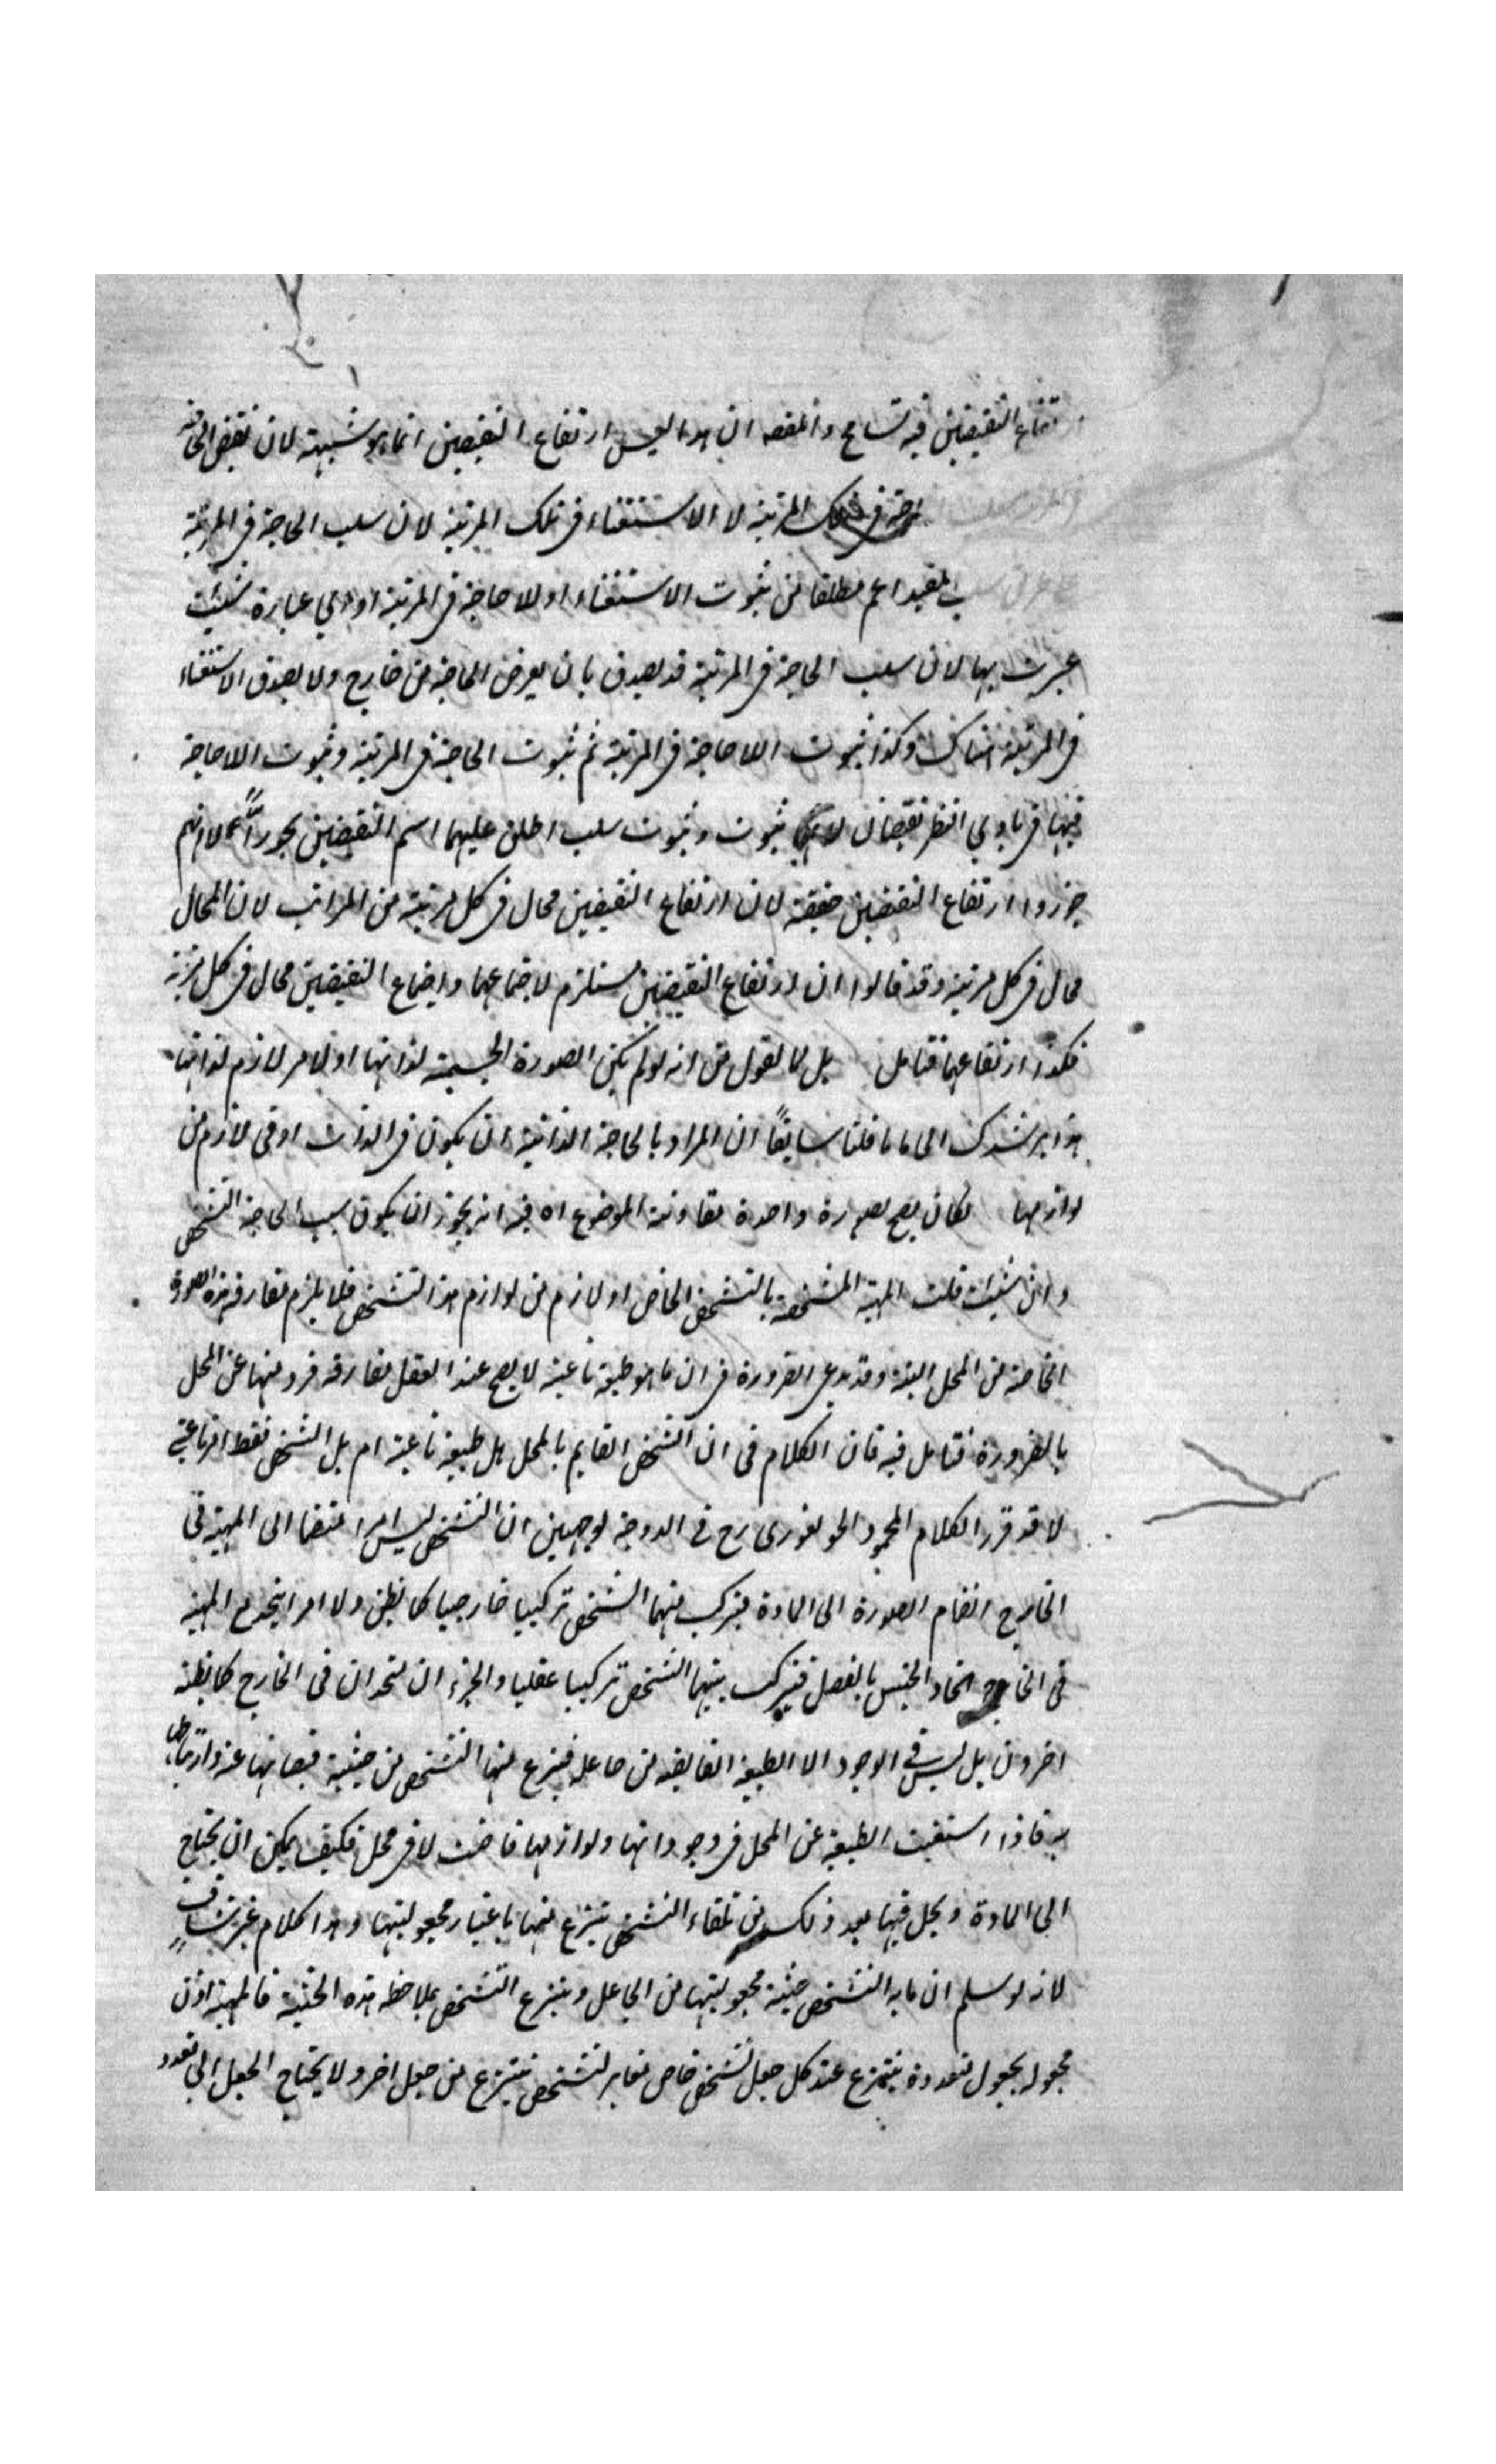 ارتفاع النقيضين فيه تسامح والمقصد ان هذا ليس ارتفاع النقيضين انما هو شبيهة لان نقيض الحاجة
فى تلك المرتبة لا الاستغناء فى تلك المرتبة لان سلب الحاجة فى المرتبة
المقيد اعم مطلقا من ثبوت الاستغناء او للاحاجة فى المرتبة او باي عبارة شئت
عبرت بها لان سلب الحاجة فى المرتبة قد يصدق بان يعرض الحاجة من خارج ولا يصدق الاستغناء
فى المرتبة هناك وكذا ثبوت اللاحاجة فى المرتبة ثم ثبوت الحاجة فى المرتبة وثبوت اللاحاجة
فيها فى بادي النظر نقيضان لانهما ثبوت وثبوت سلب اطلق عليهما اسم النقيضين تجوزا لا انهم
جوزوا ارتفاع النقيضين حقيقة لان ارتفاع النقيضين محال فى كل مرتبة من المراتب لان المحال
محال فى كل مرتبة وقد قالوا ان ارتفاع النقيضين مستلزم لاجتماعهما واجتماع النقيضين محال فى كل مرتبة
فكذا ارتفاعهما فتامل بل لما نقول من انه لو لم يكن الصورة الجسمية لذاتها او لامر لازم لذاتها
هذا يرشدك الى ما قلنا سابقاً ان المراد بالحاجة الذاتية ان يكون فى الذات او فى لازم من
لوازمها لكان يصح لصورة واحدة مقارنة الموضوع اه فيه انه يجوز ان يكون سبب الحاجة التشخص
وان شئت قلت المهية المشخصة بالتشخص الخاص او لازم من لوازم هذا التشخص فلا يلزم مفارقة هذه الصورة
الخاصة من المحل البتة وقد يدعى الضرورة فى ان ما هو طبيعة ناعتية لا يصح عند العقل مفارقة فرد منها عن المحل
بالضرورة فتامل فيه فان الكلام فى ان الشخص القايم بالمحل هل طبيعة ناعتية ام بل الشخص فقط امر ناعتى
لا قد قرر الكلام المحمود الجونفورى رح فى الدوحة لوجهين ان التشخص ليس امرا منضما الى المهية فى
الخارج انضمام الصورة الى المادة فيتركب منهما الشخص تركيبا خارجيا كما يظن ولا امرا يتحد مع المهية
فى الخارج اتحاد الجنس بالفصل فيتركب بينهما الشخص تركيبا عقليا والجزء ان يتحدان فى الخارج كما يظنه
اخرون بل ليس فى الوجود الا الطبيعة الفايضة من جاعل فينتزع منها التشخص من حيثية فيضانها عنه وارتباطها
به فاذا استغنت الطبيعة عن المحل فى وجوداتها ولوازمها فاضت لا فى محل فكيف يمكن ان يحتاج
الى المادة ويحل فيها بعد ذلك من تلقاء التشخص ينتزع منها باعتبار مجعوليتها وهذا كلام غير شاف
لانه لو سلم ان ما به التشخص حيثية مجعوليتها من الجاعل وينتزع التشخص بملاحظة هذه الحيثية فالمهية اذن
مجعولة بجعول متعددة ينتزع عند كل جعل تشخص خاص مغاير لتشخص ينتزع من جعل اخر ولا يحتاج الجعل الى تعدد